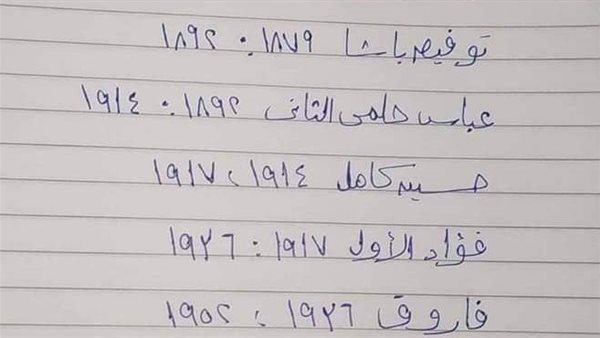 توفيق باشا ١٨٧٩ : ١٨٩٢
عباس حلمى الثانى ١٨٩٢ : ١٩١٤
حسين كامل ١٩١٤ : ١٩١٧
فؤاد الأول ١٩١٧ : ١٩٣٦
فاروق ١٩٣٦ : ١٩٥٢